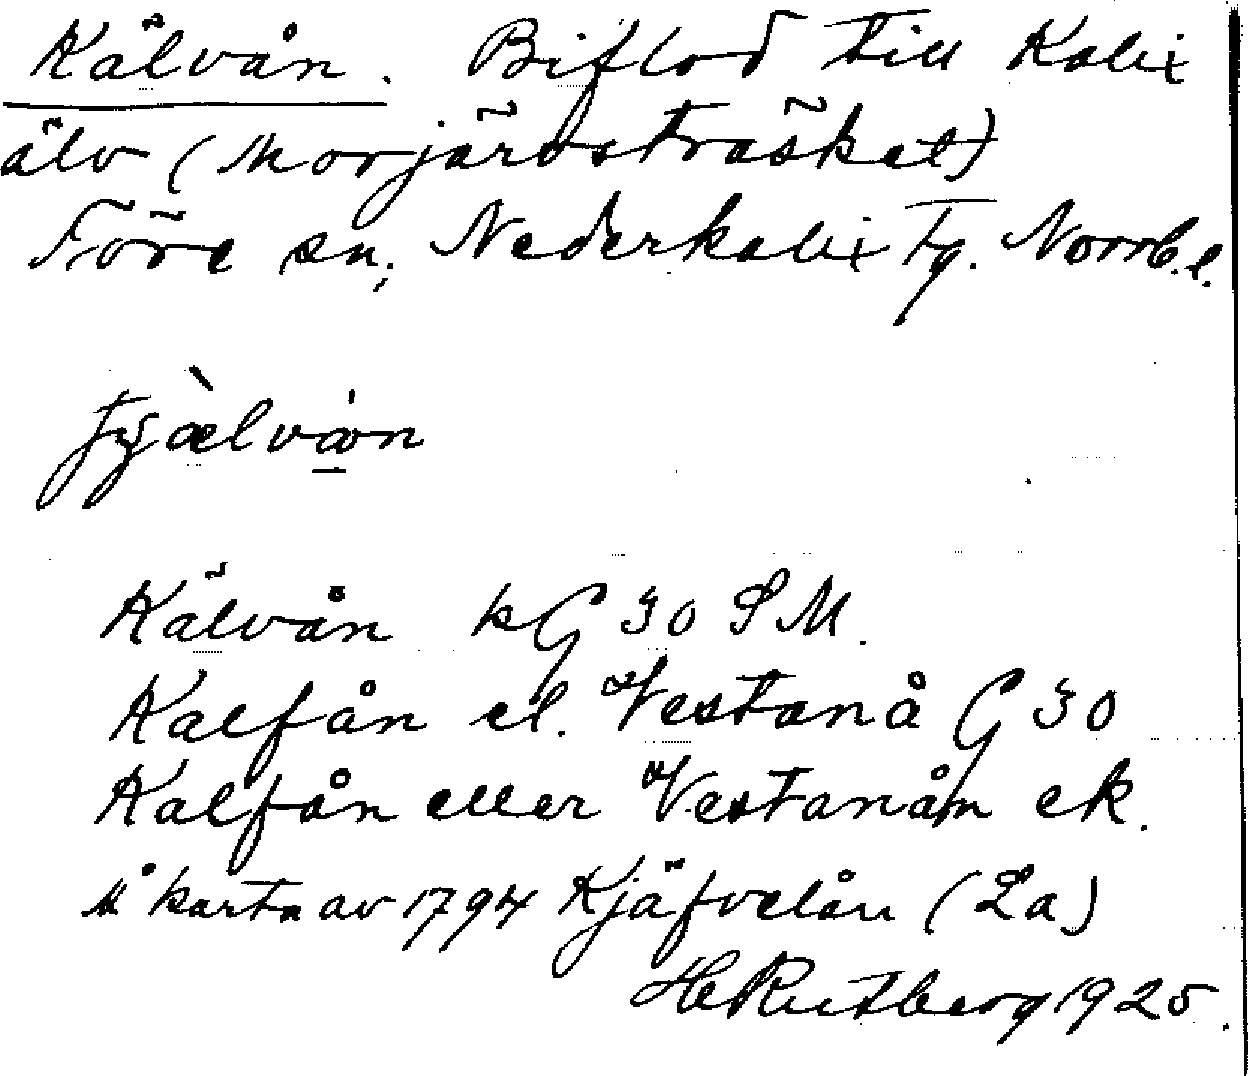 Kälvån. Biflod till Kalix
älv (Morjärvsträsket)
Töre sn, Nederkalix tg. Norrb.l.
Kälvån kG 30 SM.
Kalfån el. Vestanå G 30
Kalfån eller Vestanån ek.
Å karta av 1794 Kjäfvelån (La)
HRutberg 1925.